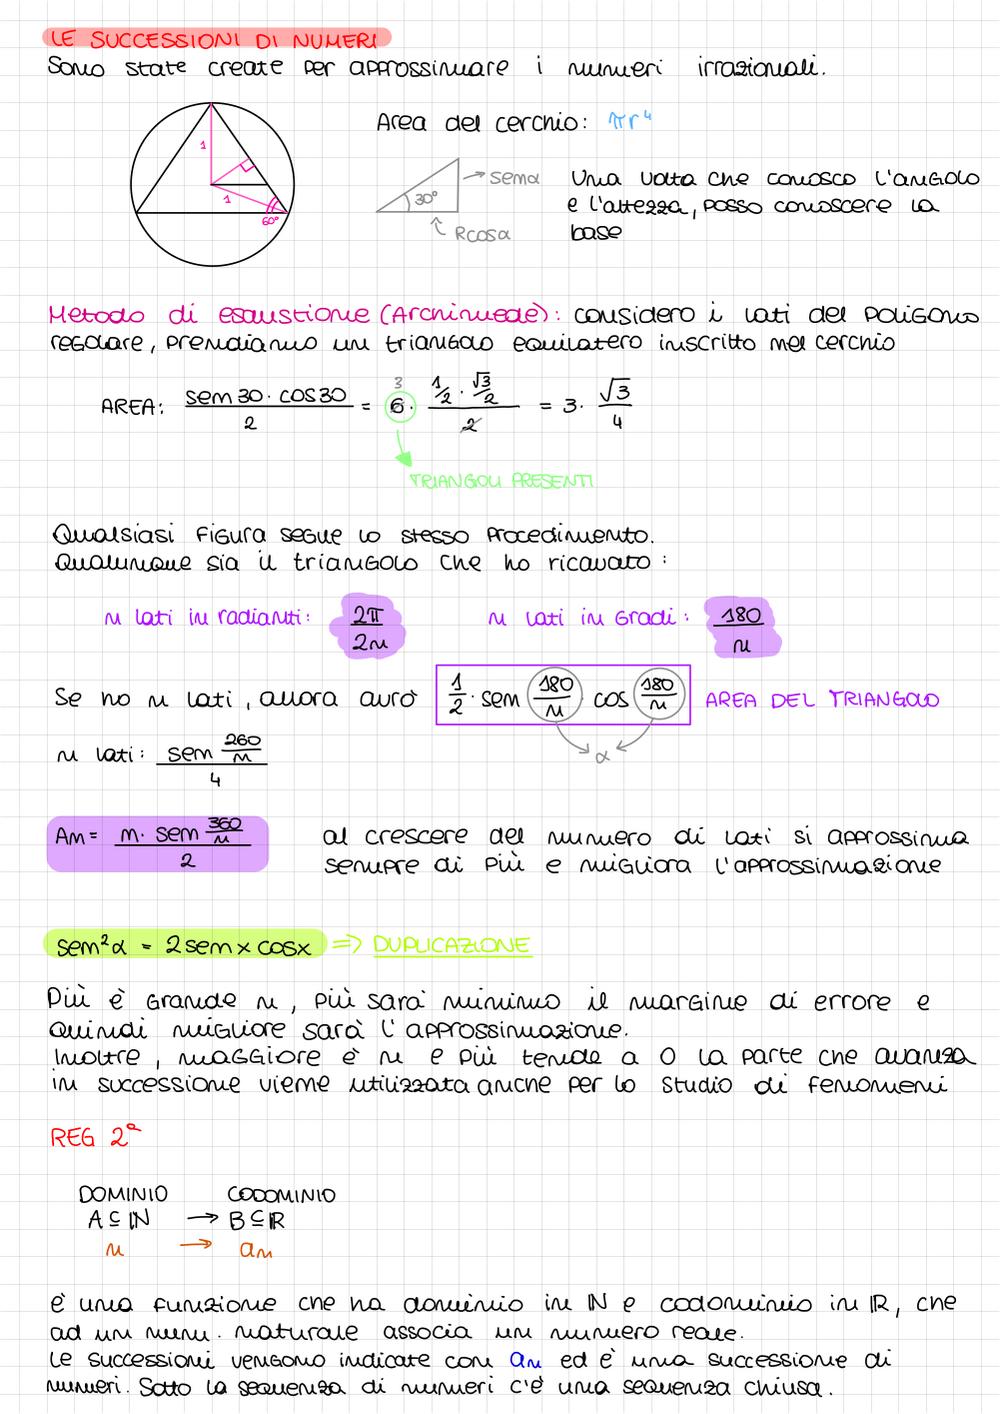 LE SUCCESSIONI DI NUMERI
Sono state create per approssimare i numeri irrazionali.
Area del cerchio: πr⁴
1
1
60°
30°
→ senα
Rcosα
Una volta che conosco l'angolo
e l'altezza, posso conoscere la
base
Metodo di esaustione (Archimede): considero i lati del poligono
regolare, prendiamo un triangolo equilatero inscritto nel cerchio
AREA: (sen30 · cos30)/2 = 6 · (1/2 · √3/2)/2 = 3 · √3/4
3
TRIANGOLI PRESENTI
Qualsiasi figura segue lo stesso procedimento.
Qualunque sia il triangolo che ho ricavato:
n lati in radianti: 2π/2n
n lati in gradi: 180/n
Se ho n lati, allora avrò 1/2 · sen 180/n cos 180/n AREA DEL TRIANGOLO
α
n lati: (sen 260/n)/4
An = (n · sen 360/n)/2
al crescere del numero di lati si approssima
sempre di più e migliora l'approssimazione
sen²α = 2senx cosx => DUPLICAZIONE
Più è grande n, più sarà minimo il margine di errore e
quindi migliore sarà l'approssimazione.
Inoltre, maggiore è n e più tende a 0 la parte che avanza
in successione viene utilizzata anche per lo studio di fenomeni
REG 2ª
DOMINIO CODOMINIO
A⊆ℕ → B⊆ℝ
n → an
è una funzione che ha dominio in ℕ e codominio in ℝ, che
ad un num. naturale associa un numero reale.
Le successioni vengono indicate con an ed è una successione di
numeri. Sotto la sequenza di numeri c'è una sequenza chiusa.